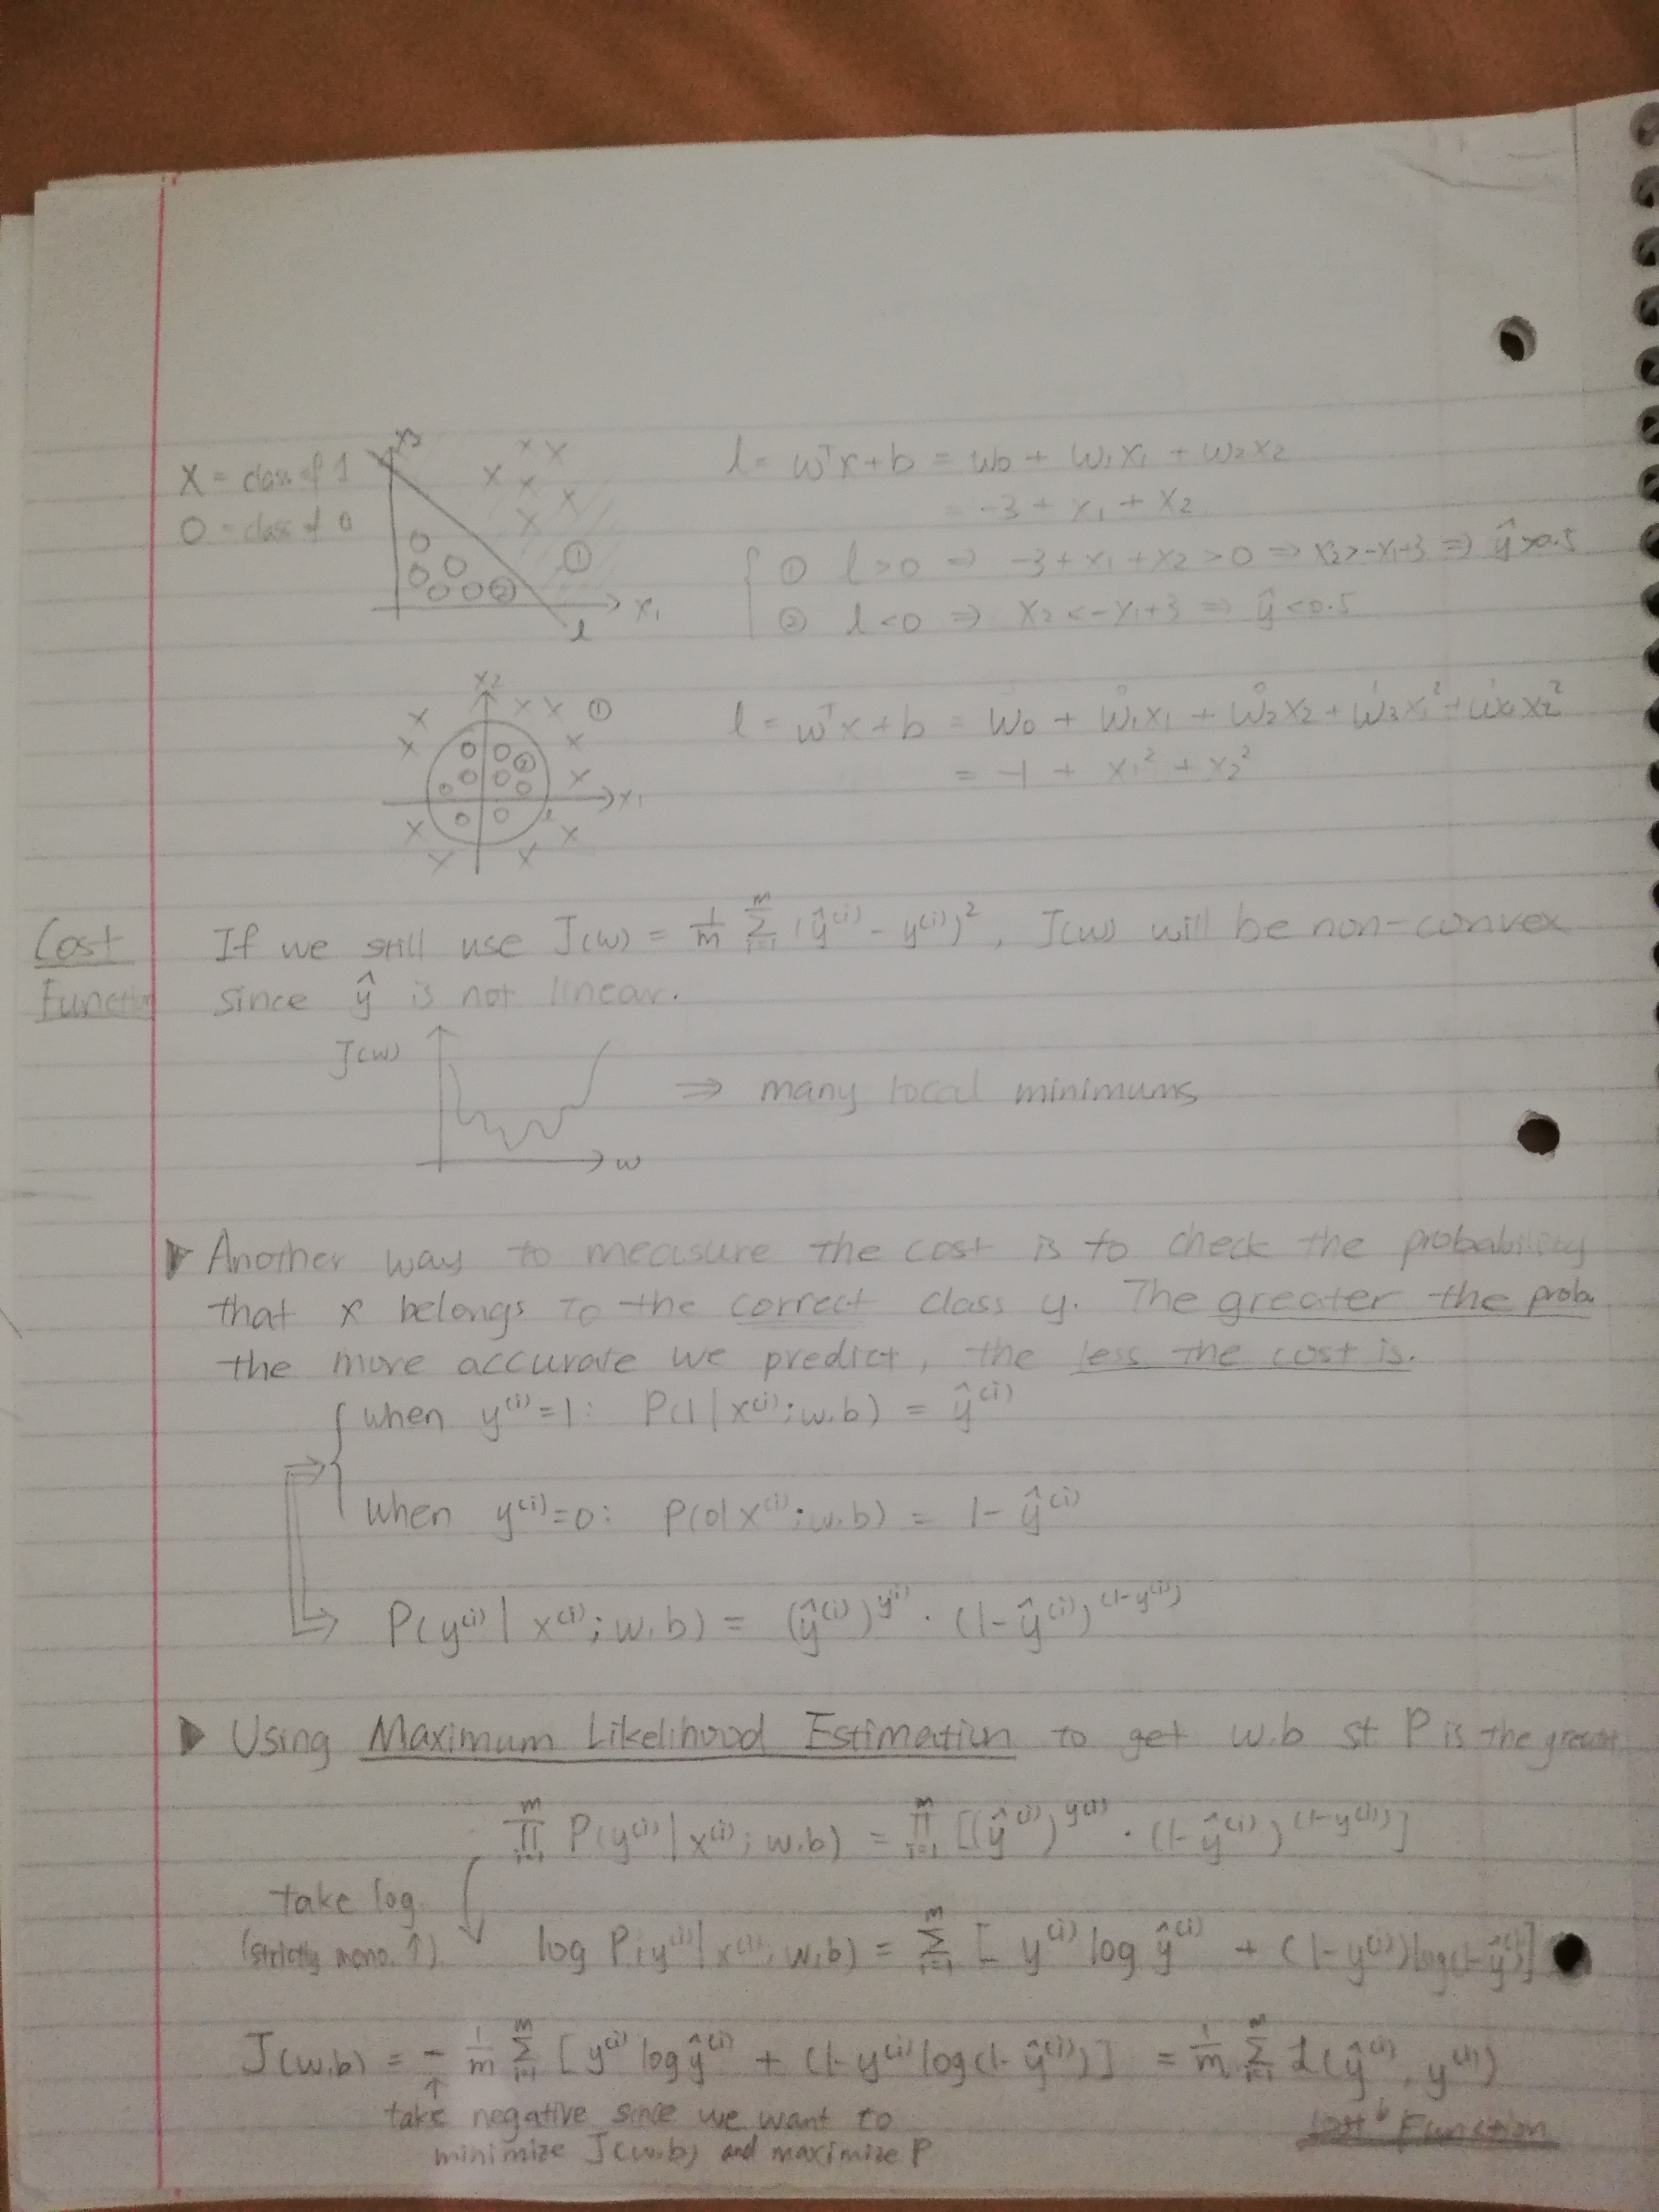 X = class of 1
O = class of 0
x2
①
②
x1
l
l = wᵀx + b = w0 + w1x1 + w2x2
= -3 + x1 + x2
① l > 0 ⇒ -3 + x1 + x2 > 0 ⇒ x2 > -x1+3 ⇒ ŷ > 0.5
② l < 0 ⇒ x2 < -x1+3 ⇒ ŷ < 0.5
x2
①
②
x1
l
0 0 1 1
l = wᵀx + b = w0 + w1x1 + w2x2 + w3x1² + w4x2²
= -1 + x1² + x2²
Cost
Function
If we still use J(w) = 1/m Σ_{i=1}^m (ŷ⁽ⁱ⁾ - y⁽ⁱ⁾)², J(w) will be non-convex
since ŷ is not linear.
J(w)
w
⇒ many local minimums
▶ Another way to measure the cost is to check the probability
that x belongs to the correct class y. The greater the proba.
the more accurate we predict, the less the cost is.
when y⁽ⁱ⁾=1: P(1|x⁽ⁱ⁾; w.b) = ŷ⁽ⁱ⁾
⇒
when y⁽ⁱ⁾=0: P(0|x⁽ⁱ⁾; w.b) = 1 - ŷ⁽ⁱ⁾
⇒ P(y⁽ⁱ⁾ | x⁽ⁱ⁾; w.b) = (ŷ⁽ⁱ⁾)^y⁽ⁱ⁾ · (1 - ŷ⁽ⁱ⁾)^(1-y⁽ⁱ⁾)
▶ Using Maximum Likelihood Estimation to get w.b st P is the
Π_{i=1}^m P(y⁽ⁱ⁾ | x⁽ⁱ⁾; w.b) = Π_{i=1}^m [(ŷ⁽ⁱ⁾)^y⁽ⁱ⁾ · (1 - ŷ⁽ⁱ⁾)^(1-y⁽ⁱ⁾)]
take log.
(strictly mono. ↑)
log P(y⁽ⁱ⁾ | x⁽ⁱ⁾; w.b) = Σ_{i=1}^m [ y⁽ⁱ⁾ log ŷ⁽ⁱ⁾ + (1 - y⁽ⁱ⁾) log(1 - ŷ⁽ⁱ⁾)]
J(w.b) = - 1/m Σ_{i=1}^m [ y⁽ⁱ⁾ log ŷ⁽ⁱ⁾ + (1 - y⁽ⁱ⁾ log(1 - ŷ⁽ⁱ⁾)] = 1/m Σ_{i=1}^m L(ŷ⁽ⁱ⁾, y⁽ⁱ⁾)
↑
take negative since we want to
minimize J(w.b) and maximize P
Function